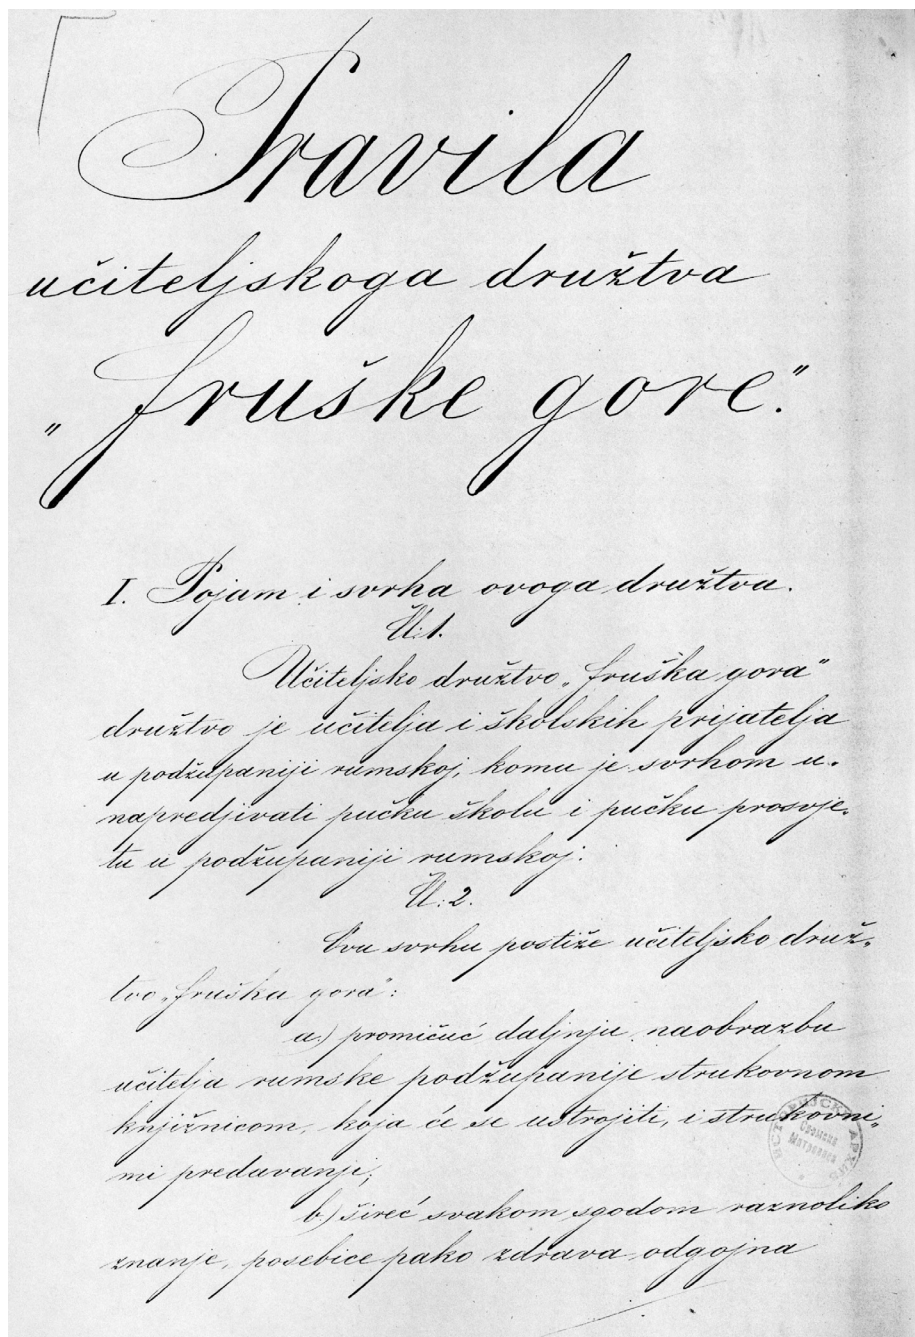 Pravila
učiteljskoga družtva
„fruške gore."
I. Pojam i svrha ovoga družtva.
Čl: 1.
Učiteljsko družtvo „fruška gora"
družtvo je učitelja i školskih prijatelja
u podžupaniji rumskoj, komu je svrhom u„
napredjivati pučku školu i pučku prosvje„
tu u podžupaniji rumskoj.
Čl: 2.
Ovu svrhu postiže učiteljsko druž„
tvo „fruška gora":
a.) promičuć daljnju naobrazbu
učitelja rumske podžupanije strukovnom
knjižnicom, koja će se ustrojiti, i strukovni„
mi predavanji;
b.) šireć svakom sgodom raznoliko
znanje, posebice pako zdrava odgojna
ИСТОРИЈСКИ АРХИВ
Сремска
Митровица